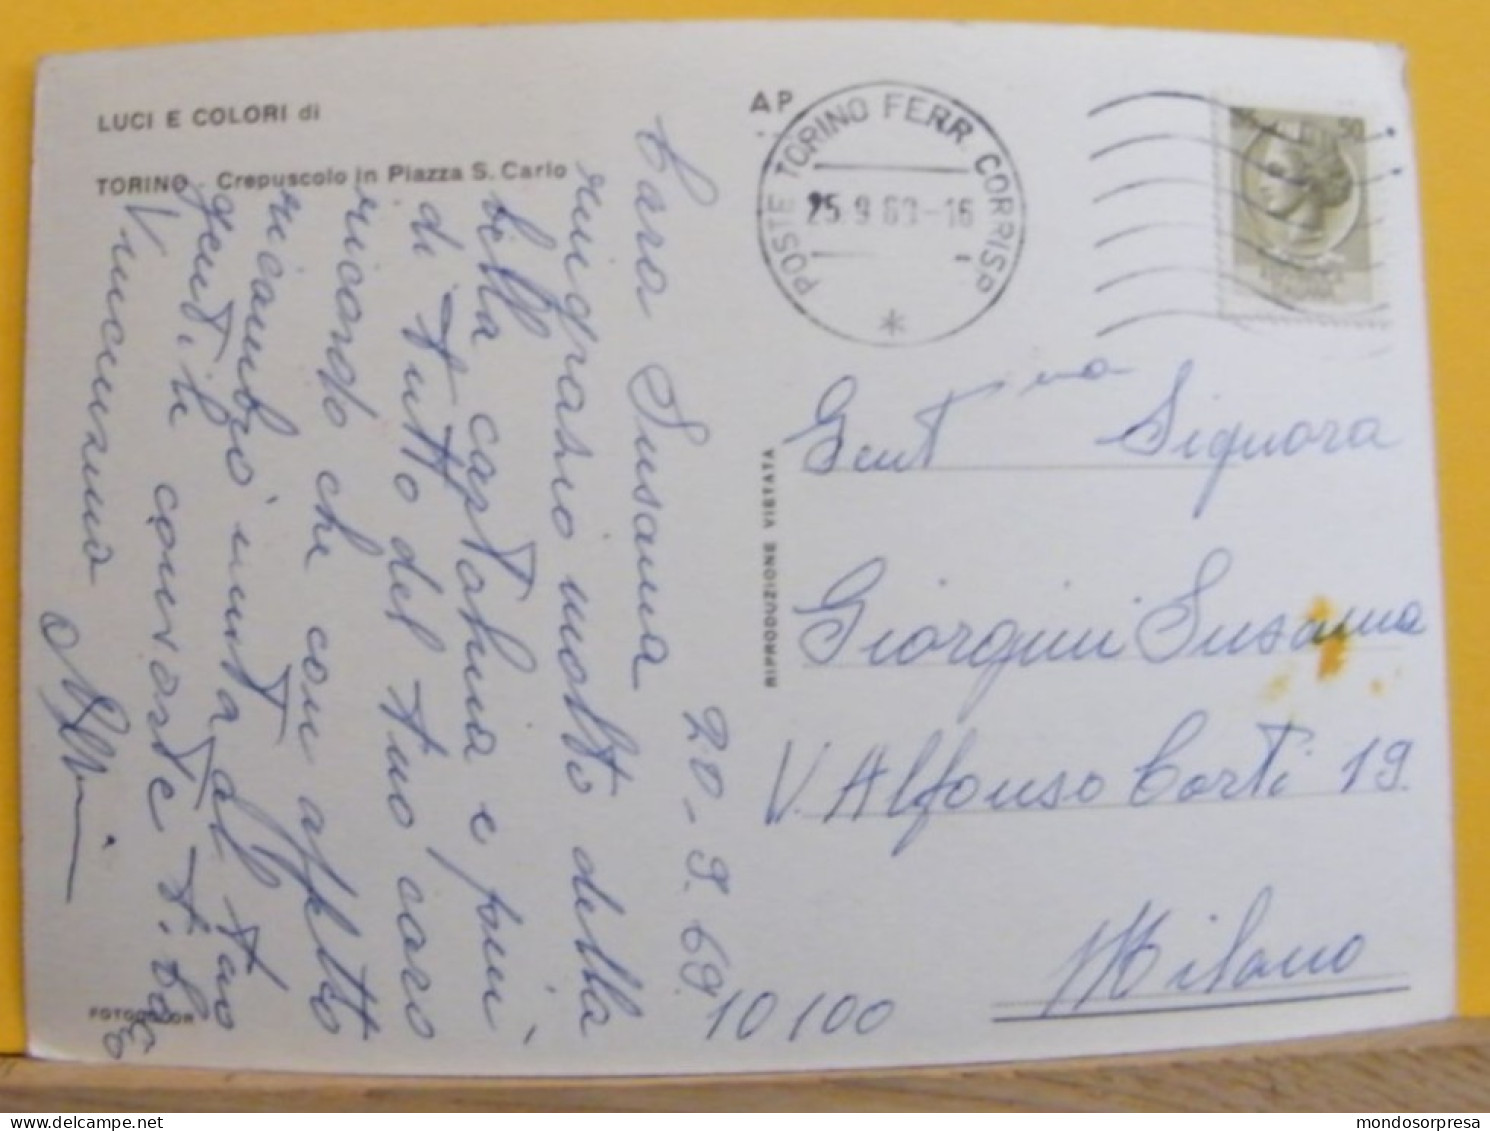 LUCI E COLORI di
TORINO - Crepuscolo in Piazza S. Carlo
AP
POSTE TORINO FERR. CORRISP.
25.9.69-16
*
50
Cara Susana
ringrazio molto della
bella cartolina e più
di tutto del tuo caro
ricordo che con affetto
ricambio unita al tuo
gentile consorte
Vincenzino
20-9-69
10/100
RIPRODUZIONE VIETATA
Gent.ma Signora
Giorgini Susanna
V. Alfonso Corti 19.
Milano
FOTOCOLOR
mondosorpresa